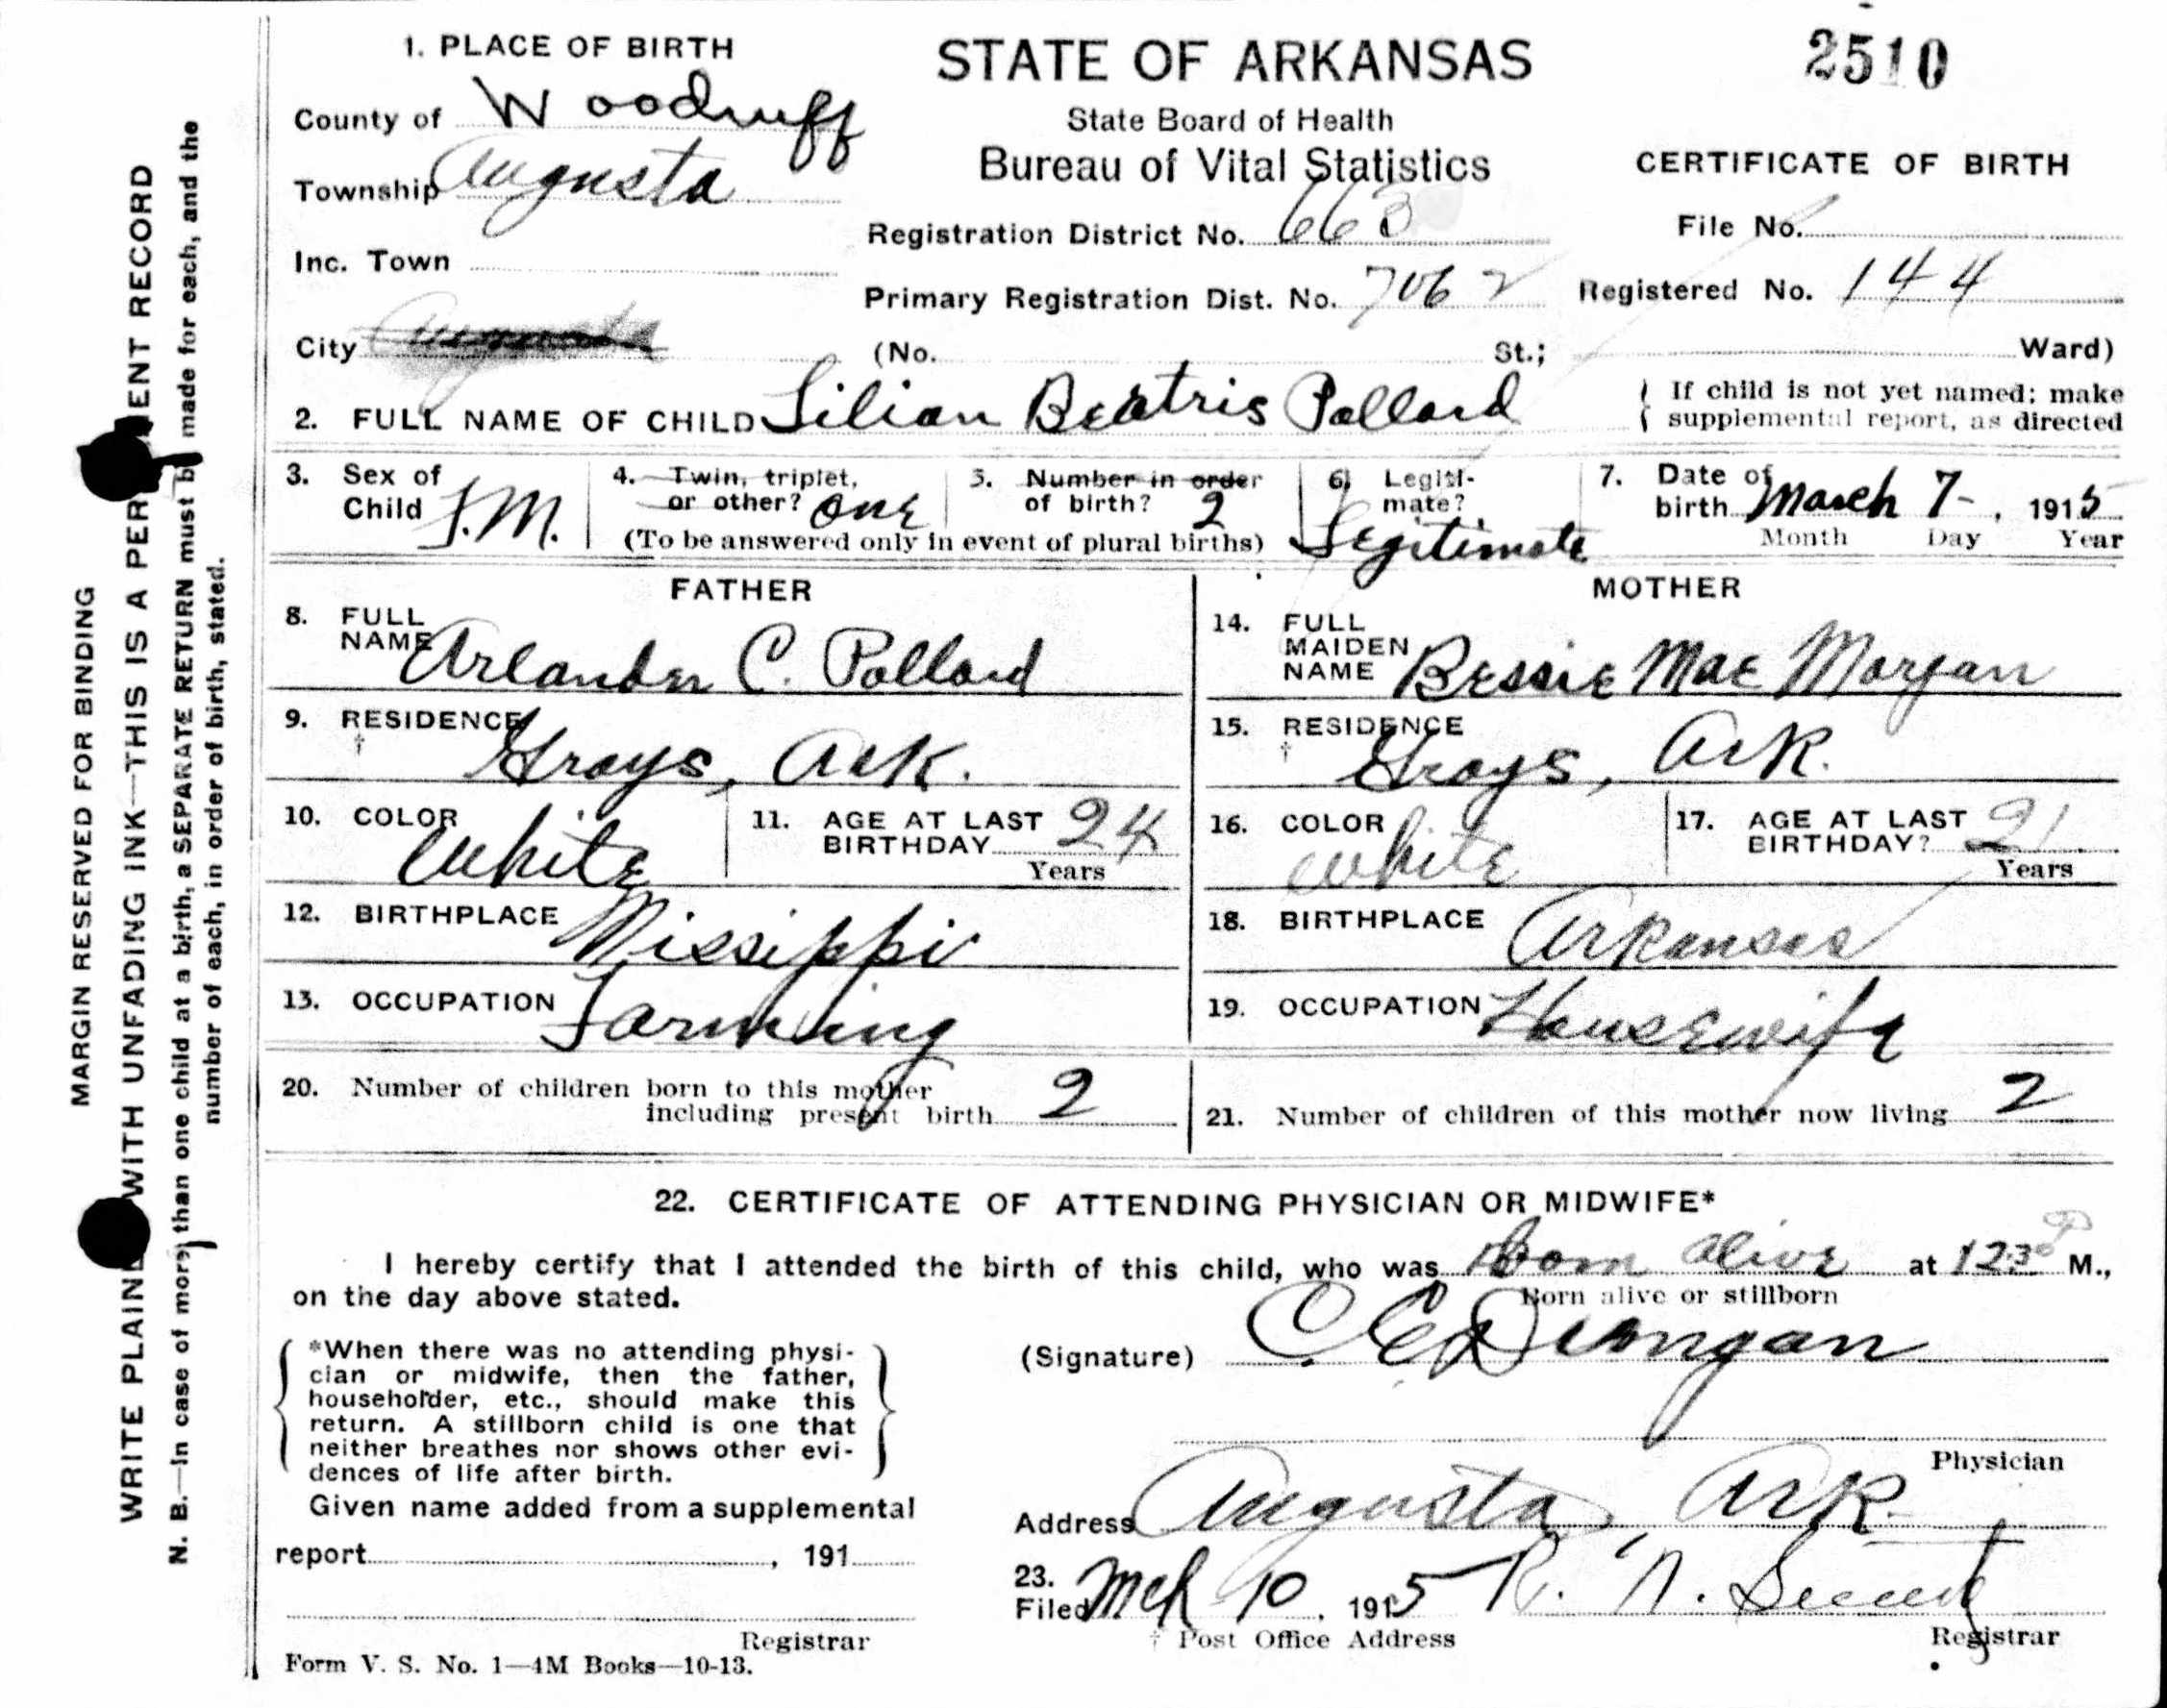 1. PLACE OF BIRTH
STATE OF ARKANSAS
2510
County of Woodruff
State Board of Health
Township Augusta
Bureau of Vital Statistics
CERTIFICATE OF BIRTH
Registration District No. 663
File No.
Inc. Town
Primary Registration Dist. No. 7062
Registered No. 144
City Augusta
(No. St.; Ward)
2. FULL NAME OF CHILD Lilian Beatris Pollard
If child is not yet named; make
supplemental report, as directed
3. Sex of
Child F.M.
4. Twin, triplet,
or other? one
5. Number in order
of birth? 2
(To be answered only in event of plural births)
6. Legiti-
mate?
Legitimate
7. Date of
birth March 7-, 1915
Month Day Year
FATHER
8. FULL
NAME Arlander C. Pollard
9. RESIDENCE
† Grays, Ark.
10. COLOR
White
11. AGE AT LAST
BIRTHDAY 24
Years
12. BIRTHPLACE Missippi
13. OCCUPATION Farming
MOTHER
14. FULL
MAIDEN
NAME Bessie Mae Morgan
15. RESIDENCE
† Grays, Ark.
16. COLOR
White
17. AGE AT LAST
BIRTHDAY? 21
Years
18. BIRTHPLACE Arkansas
19. OCCUPATION Housewife
20. Number of children born to this mother
including present birth 2
21. Number of children of this mother now living 2
22. CERTIFICATE OF ATTENDING PHYSICIAN OR MIDWIFE*
I hereby certify that I attended the birth of this child, who was born alive at 1230 P M.,
on the day above stated.
Born alive or stillborn
*When there was no attending physi-
cian or midwife, then the father,
householder, etc., should make this
return. A stillborn child is one that
neither breathes nor shows other evi-
dences of life after birth.
Given name added from a supplemental
report , 191
Registrar
Form V. S. No. 1—4M Books—10-13.
(Signature) C E
Physician
Address Augusta, Ark.
23.
Filed Mch 10, 1915 R. N.
† Post Office Address
Registrar
MARGIN RESERVED FOR BINDING
WRITE PLAINLY WITH UNFADING INK—THIS IS A PERMANENT RECORD
N. B.—In case of more than one child at a birth, a SEPARATE RETURN must be made for each, and the
number of each, in order of birth, stated.